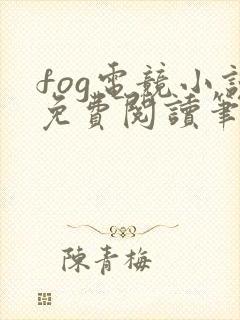 fog電競小說
免費閱讀筆
陳青梅